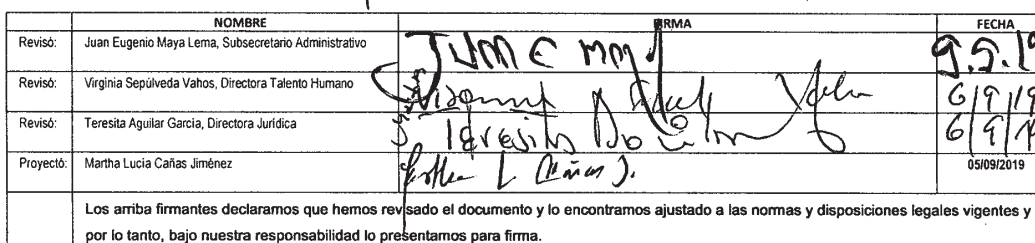 NOMBRE FIRMA FECHA
Revisó: Juan Eugenio Maya Lema, Subsecretario Administrativo
Revisó: Virginia Sepúlveda Vahos, Directora Talento Humano 6/9/19
Revisó: Teresita Aguilar Garcia, Directora Jurídica 6/9/
Proyectó: Martha Lucia Cañas Jiménez 05/09/2019
Los arriba firmantes declaramos que hemos revisado el documento y lo encontramos ajustado a las normas y disposiciones legales vigentes y
por lo tanto, bajo nuestra responsabilidad lo presentamos para firma.